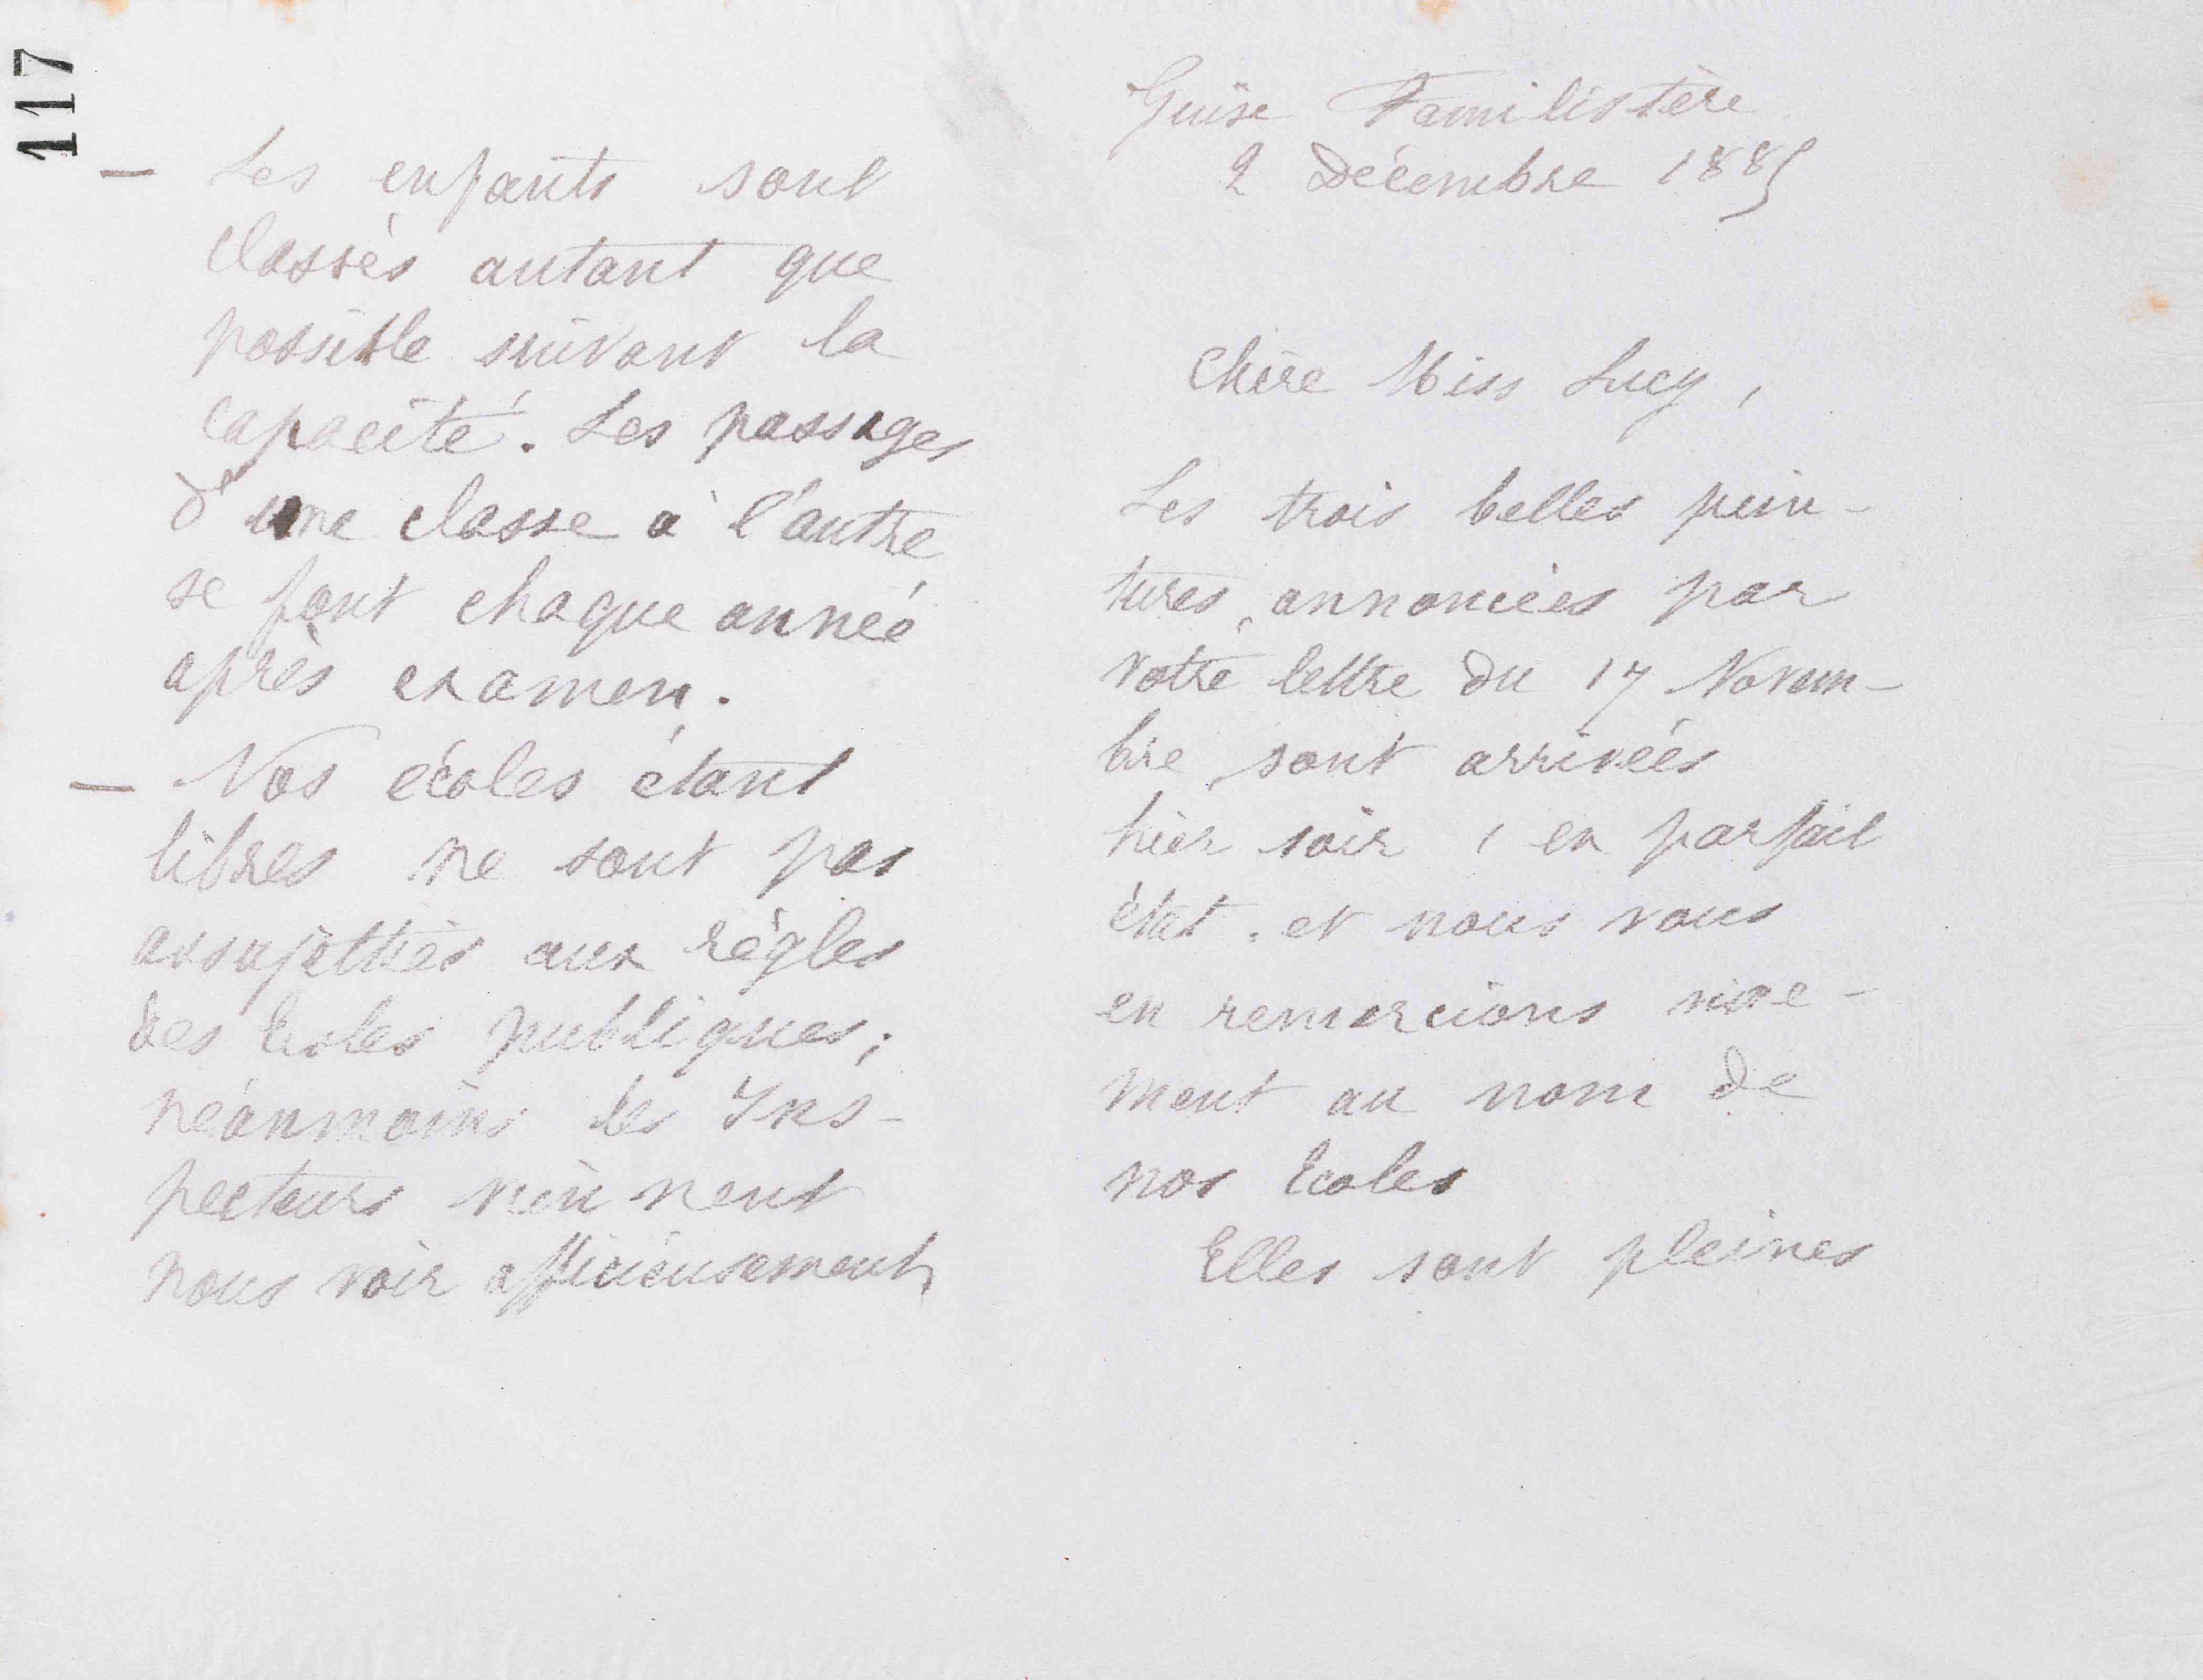 117
— Les enfants sont
classés autant que
possible suivant la
capacité. Les passages
d'une classe à l'autre
se font chaque année
après examen.
— Nos écoles étant
libres ne sont pas
assujetties aux règles
des Ecoles publiques;
néanmoins les Ins-
pecteurs viennent
nous voir officieusement,
Guise Familistère
2 Décembre 1885
Chère Miss Lucy,
Les trois belles pein-
tures, annoncées par
votre lettre du 17 Novem-
bre, sont arrivées
hier soir, en parfait
état, et nous vous
en remercions vive-
ment au nom de
nos Ecoles
Elles sont pleines